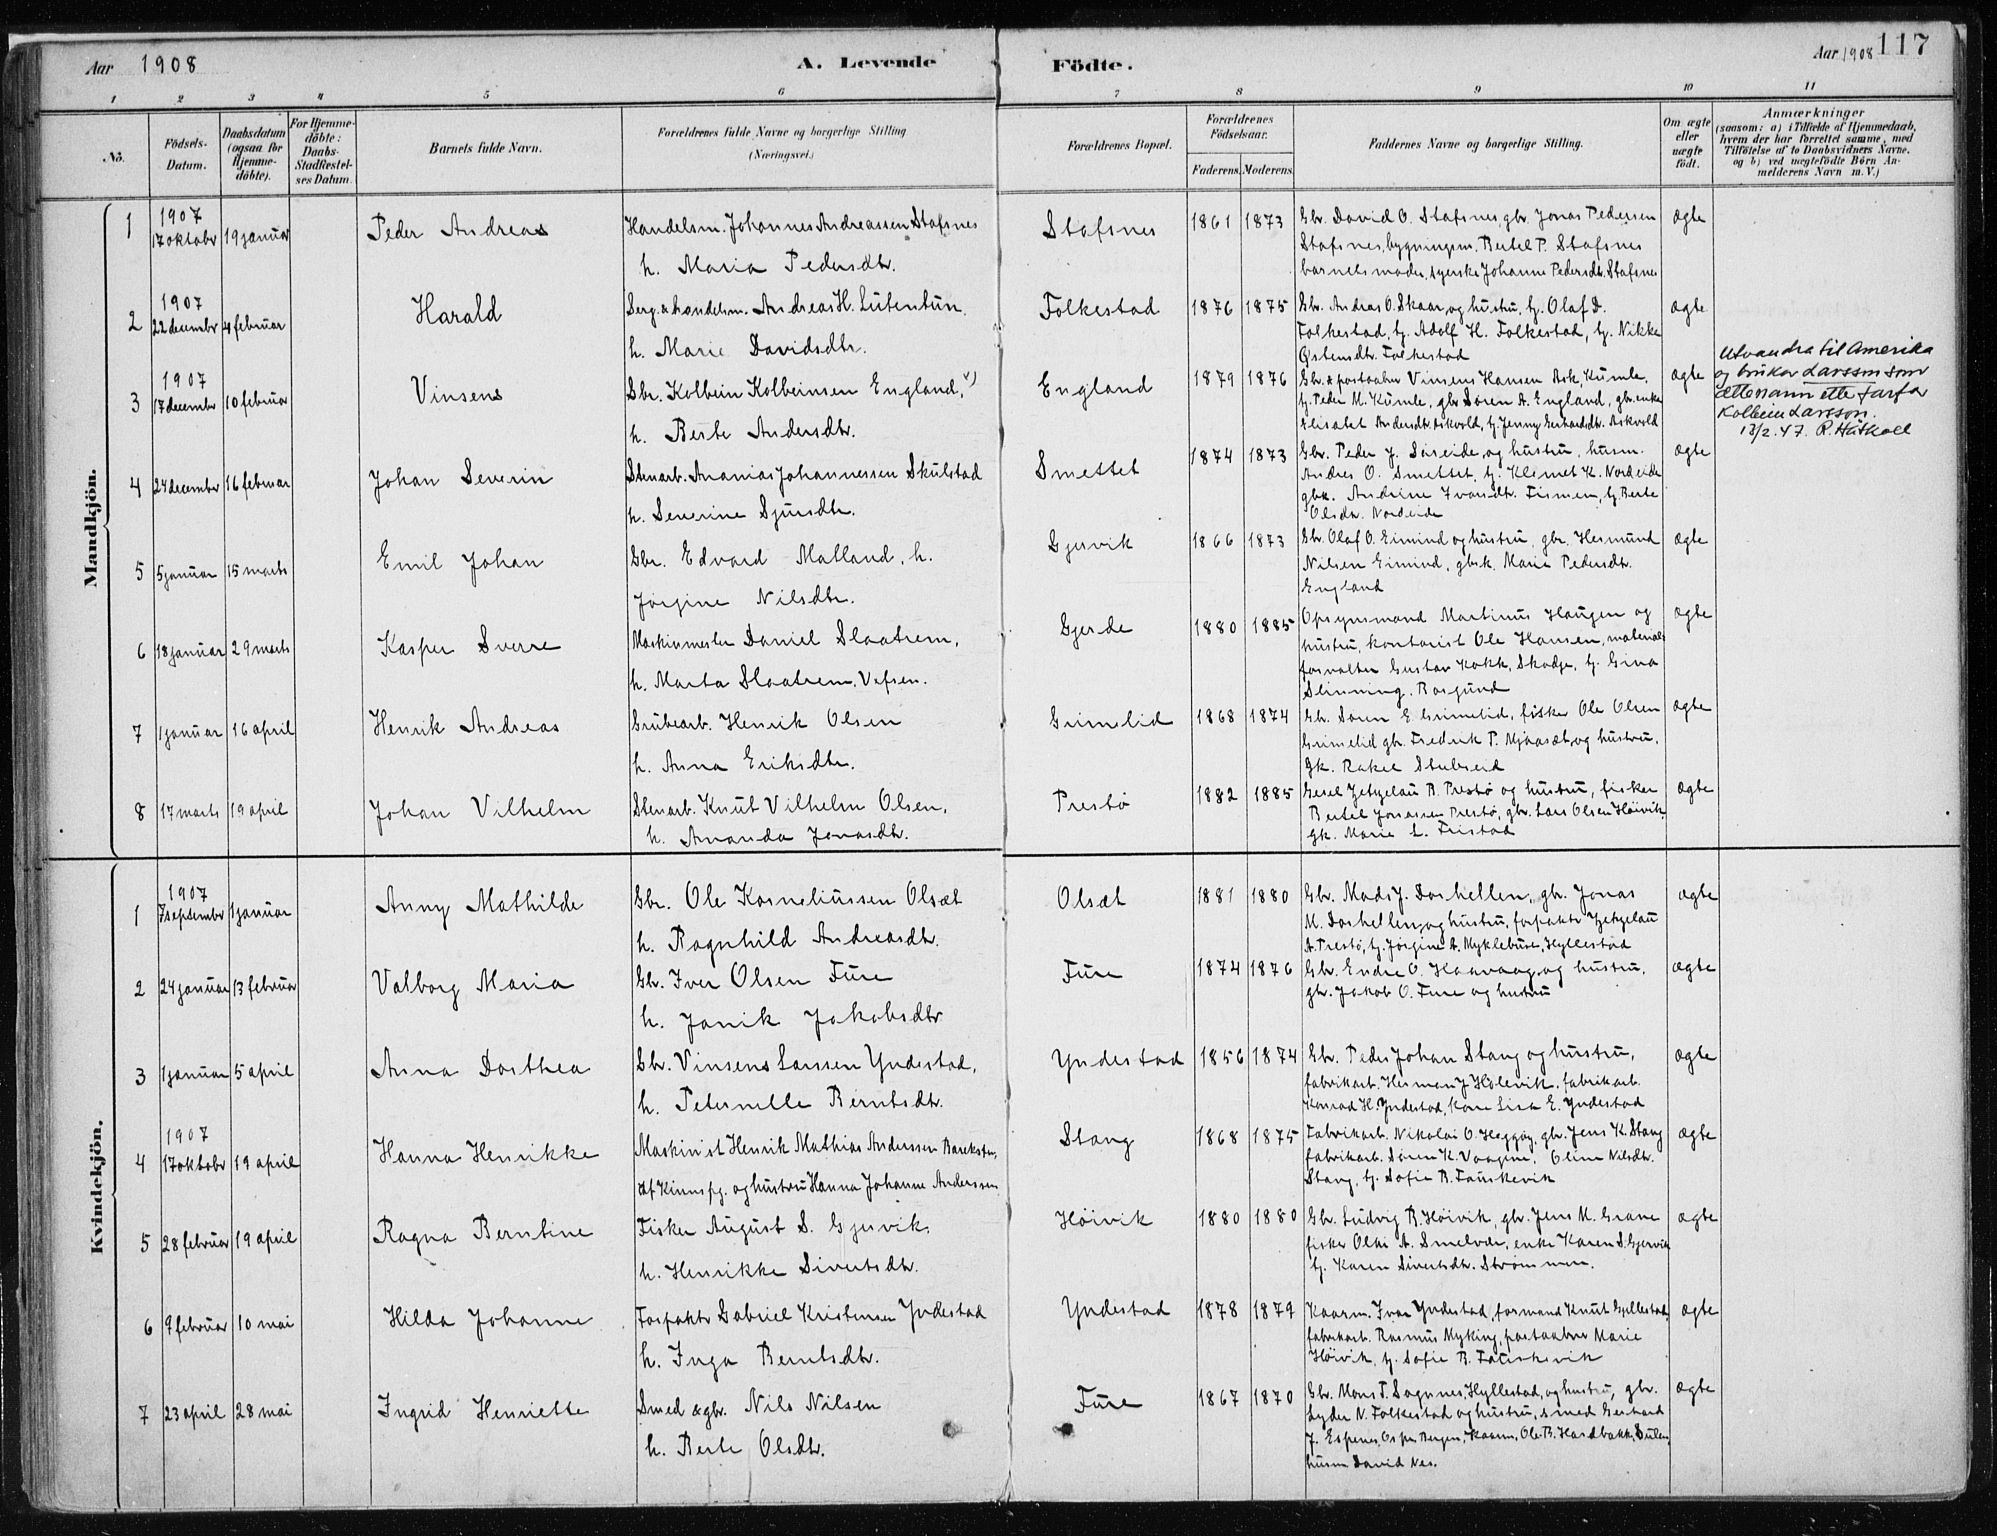 Aar 1908
A. Levende
Födte.
Aar 1908 117
1 2 3 4 5 6 7 8 9 10 11
No.
Födsels-Datum.
Daabsdatum (ogsaa for Hjemme-döbte).
For Hjemme-döbte: Daabs-Stadfæstel-ses Datum.
Barnets fulde Navn.
Forældrenes fulde Navne og borgerlige Stilling (Næringsvei.)
Forældrenes Bopæl.
Forældrenes Födselsaar.
Faderens. Moderens.
Faddernes Navne og borgerlige Stilling.
Om ægte eller uægte födt.
Anmærkninger
(saasom: a) i Tilfælde af Hjemmedaab, hvem der har forrettet samme, med Tilföielse af to Daabsvidners Navne. og b) ved uægtefödte Börn An-melderens Navn m. V.)
Mandkjön.
1 1907 17 oktobr 19 januar Peder Andreas Handelsm. Johannes Andreassen Stafsnes Stafsnes 1861 1873 Gbr. David O. Stafsnes, gbr. Jonas Pedersen ægte
h. Maria Pedersdtr. Stafsnes, bygningsm. Bertel P. Stafsnes
barnets moder, syerske Johanne Pedersdtr. Stafsnes
2 1907 22 decembr 4 februar Harald Serg. & handelsm. Andreas H. Lutentun. Folkestad 1876 1875 Gbr. Andreas O. Skaar, og hustru, tj. Olaf D. ægte
h. Marie Davidsdtr. Folkestad, tj. Adolf H. Folkestad, tj. Nikke
Østensdtr. Folkestad
3 1907 17 decembr 10 februar Vinsens Gbr. Kolbein Kolbeinsen England, v) England 1879 1876 Gbr. & postaabn. Vinsens Hansen Ask, Kumle, ægte
h. Berte Andersdtr. tj. Peder M. Kumle, gbr. Søren A. England, gbr. enke
Elisabet Andersdtr. Askvold, tj. Jenny Gerhardsdtr. Askvold
Utvandra til Amerika
og bruker Larsson som
ættenamn etter farfar
Kolbein Larsson.
13/2. 47. R. Hatkoll
4 24 decembr 16 februar Johan Severin Stenarb. Ananias Johannessen Skulstad Smettet 1874 1873 Gbr. Peder J. Søreide, og hustru, husm. ægte
h. Severine Sjursdtr. Andres O. Smettet, tj. Klemet K. Nordeide
gbk. Andrine Ivarsdtr. Fismen, tj. Berte
Olsdtr. Nordeide
5 5 januar 15 marts Emil Johan Gbr. Edvard Malland, h. Gjervik 1866 1873 Gbr. Olaf O. Eimind og hustru, gbr. Hermund ægte
Jørgine Nilsdtr. Nilsen Eimind, gbrk. Marie Pedersdtr.
England
6 18 januar 29 marts Kasper Sverre Maskinmester Daniel Slaatrem, Gjerde 1880 1885 Opsynsmand Martinus Haugen og ægte
h. Marta Slaatrem, Vefsen. hustru, kontorist Ole Hansen, material-
forvalter Gustav Kokk, Skodje, tj. Gina
Slinning, Borgund
7 1 januar 16 april Henrik Andreas Grubearb. Henrik Olsen Grimelid 1868 1874 Gb. Søren E. Grimelid, fisker Ole Olsen ægte
h. Anna Eriksdtr. Grimelid gbr. Fredrik P. Mjaaset, og hustru,
Gk. Rakel Stubseid
8 17 marts 19 april Johan Vilhelm Stenarb. Knut Vilhelm Olsen, Prestø 1882 1885 Gesel Zetzelau B. Prestø og hustru, fisker ægte
h. Amanda Jonasdtr. Bertel Jonassen Prestø, gbr. Lars Olsen Høivik
Gk. Marie L. Fristad
Kvindekjön.
1 1907 7 septembr 1 januar Anny Mathilde Gbr. Ole Korneliussen Olset Olsæt 1881 1880 Gbr. Mads J. Doshellen, gbr. Jonas ægte
h. Ragnhild Andreasdtr. M. Doshellen, og hustru, forpakter Zetzelau
A. Prestø, tj. Jørgine A. Myklebust, Hyllestad
2 24 januar 13 februar Valborg Maria Gbr. Iver Olsen Fure Fure 1874 1876 Gbr. Endre O. Haavaag, og hustru, ægte
h. Janik Jakobsdtr gbr. Jakob O. Fure og hustru
3 1 januar 5 april Anna Dorthea Gbr. Vinsens Larssen Yndestad, Yndestad 1856 1874 Gbr. Peder Johan Stang og hustru, ægte
h. Peternille Berntsdtr. fabrikarb. Herman J. Holevik, fabrikarb.
Konrad H. Yndestad, kone Lisa E. Yndestad
4 1907 17 oktobr 19 april Hanna Henrikke Maskinist Henrik Mathias Anderssen Barekster, Stang 1868 1875 Fabrikarb. Nikolai O. Heggøy, gbr. Jens K. Stang ægte
af Kinnspg. og hustru Hanna Johanne Anderssen fabrikarb. Søren K. Vaagene, Oline Nilsdtr.
Stang, tj. Sofie B. Fauskevik
5 28 februar 19 april Ragna Berntine Fisker August S. Gjervik, Høivik 1880 1880 Gbr. Ludvig B. Høivik, gbr. Jens M. Grane ægte
h. Henrikke Sivertsdtr. fisker Olai A. Smelvær, enke Karen S. Gjervik
tj. Karen Sivertsdtr. Strømmen.
6 9 februar 10 mai Hilda Johanne Forpakter Gabriel Kristensen Yndestad Yndestad 1878 1879 Kaarm. Ivar Yndestad, formand Knut Gyllestad, ægte
h. Inga Berntsdtr. fabrikarb. Rasmus Myking, postaabner Marie
Høivik, tj. Sofie B. Fauskevik
7 23 april 28 mai Ingrid Henriette Smed & gbr. Nils Nilsen Fure 1867 1870 Gbr. Mons P. Sognnes, Hyllestad, og hustru, gbr. ægte
h. Berte Olsdtr. Lyder N. Folkestad og hustru, smed Gerhard
J. Espenes, Bergen, kaarm. Ole B. Hardbakke, Sulen,
husm. David Nes.